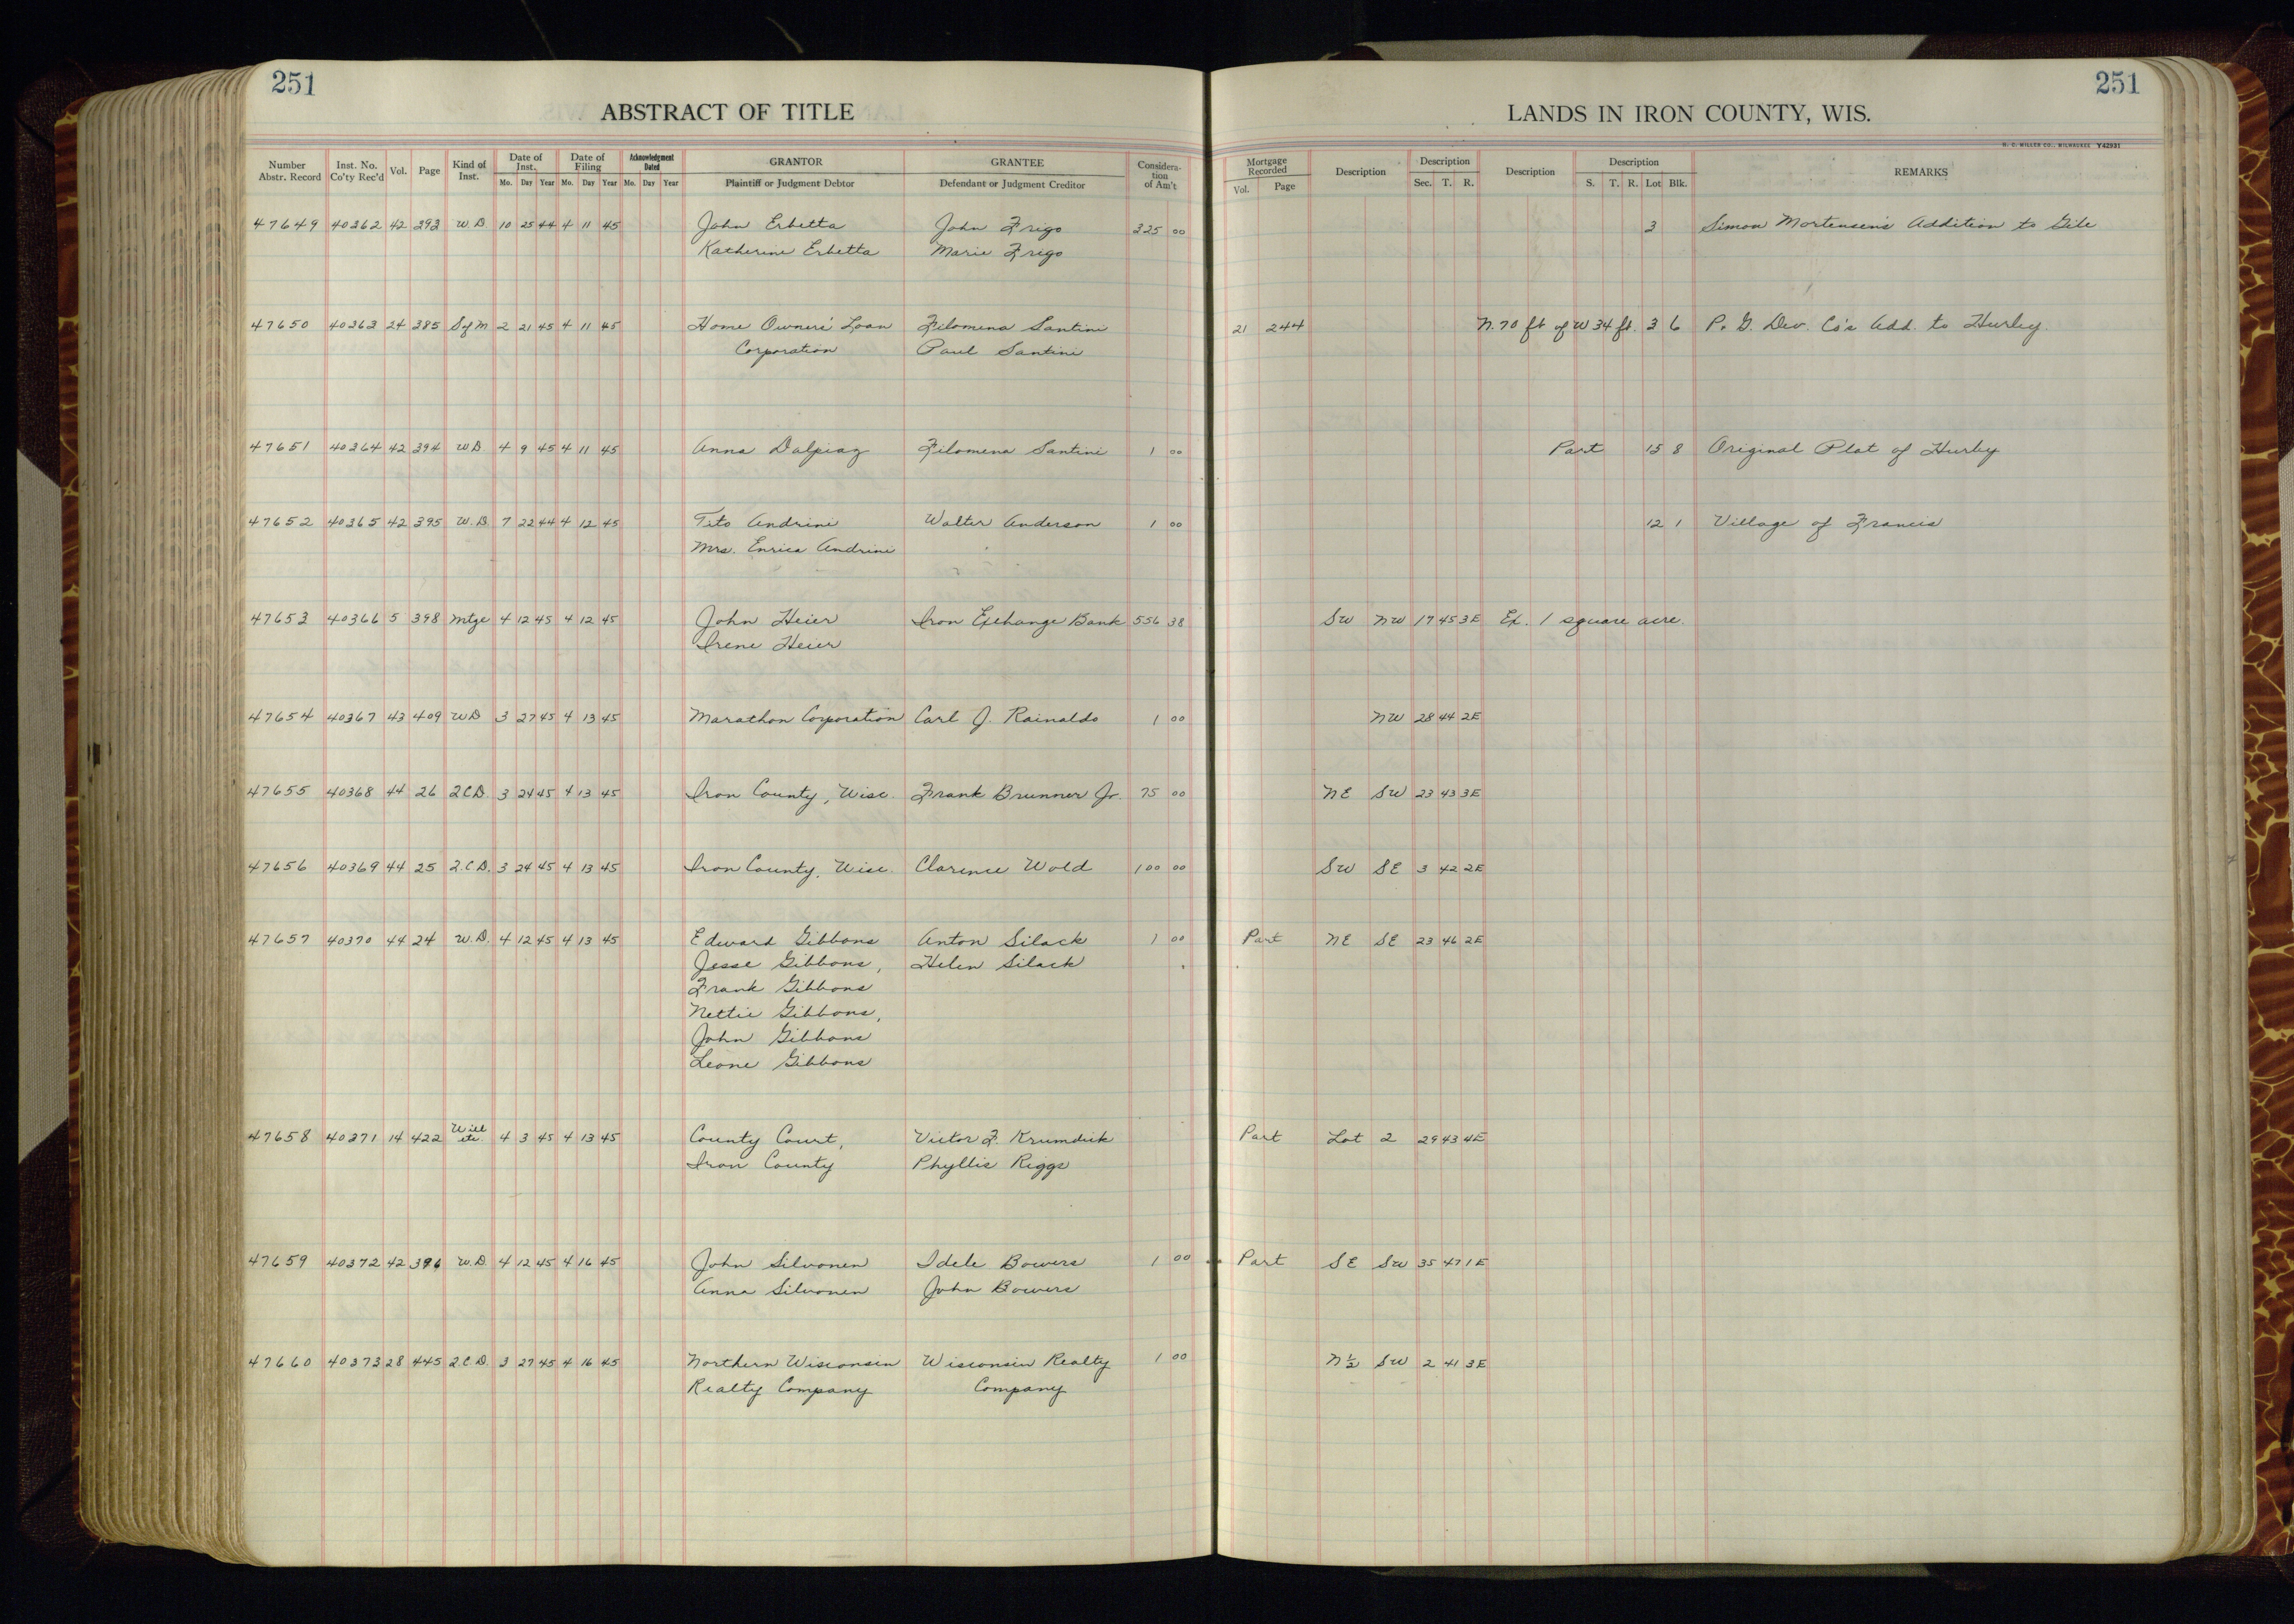 251
ABSTRACT OF TITLE
Number Abstr. Record Inst. No. Co'ty Rec'd Vol. Page Kind of Inst. Date of Inst. Mo. Day Year Date of Filing Mo. Day Year Acknowledgment Dated Mo. Day Year GRANTOR Plaintiff or Judgment Debtor GRANTEE Defendant or Judgment Creditor Considera-tion of Am't
251
LANDS IN IRON COUNTY, WIS.
H. C. MILLER CO., MILWAUKEE Y42931
Mortgage Recorded Vol. Page Description Description Sec. T. R. Description Description S. T. R. Lot Blk. REMARKS
47649 40362 42 393 W.D 10 25 44 4 11 45 John Erbetta John Frigo 325 00 3 Simon Mortensen's Addition to Gile
Katherine Erbetta Marie Frigo
47650 40363 24 385 S of M 2 21 45 4 11 45 Home Owners' Loan Filomena Santini 21 244 N. 70 ft of W 34 ft. 3 6 P. G. Dev. Co's Add. to Hurley.
Corporation Paul Santini
47651 40364 42 394 W.D 4 9 45 4 11 45 Anna Dalpiaz Filomena Santini 1 00 Part 15 8 Original Plat of Hurley
47652 40365 42 395 W.D. 7 22 44 4 12 45 Tito Andrini Walter Anderson 1 00 12 1 Village of Francis
Mrs. Enrica Andrini
47653 40366 5 398 Mtge 4 12 45 4 12 45 John Heier Iron Exchange Bank 556 38 SW NW 17 45 3E Ex. 1 square acre.
Irene Heier
47654 40367 43 409 W.D 3 27 45 4 13 45 Marathon Corporation Carl J. Rainaldo 1 00 NW 28 44 2E
47655 40368 44 26 Q.C.D. 3 24 45 4 13 45 Iron County, Wisc. Frank Brunner Jr. 75 00 NE SW 23 43 3E
47656 40369 44 25 Q.C.D. 3 24 45 4 13 45 Iron County, Wisc. Clarence Wold 100 00 SW SE 3 42 2E
47657 40370 44 24 W.D. 4 12 45 4 13 45 Edward Gibbons Anton Silack 1 00 Part NE SE 23 46 2E
Jesse Gibbons, Helen Silack
Frank Gibbons
Nettie Gibbons,
John Gibbons
Leone Gibbons
47658 40371 14 422 Will etc 4 3 45 4 13 45 County Court, Victor F. Krumdick Part Lot 2 29 43 4E
Iron County Phyllis Riggs
47659 40372 42 396 W.D. 4 12 45 4 16 45 John Silvonen Idele Bowers 1 00 Part SE SW 35 47 1E
Anna Silvonen John Bowers
47660 40373 28 445 Q.C.D. 3 27 45 4 16 45 Northern Wisconsin Wisconsin Realty 1 00 N½ SW 2 41 3E
Realty Company Company